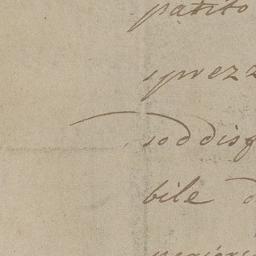 patito
sprezz
soddisf
bile d